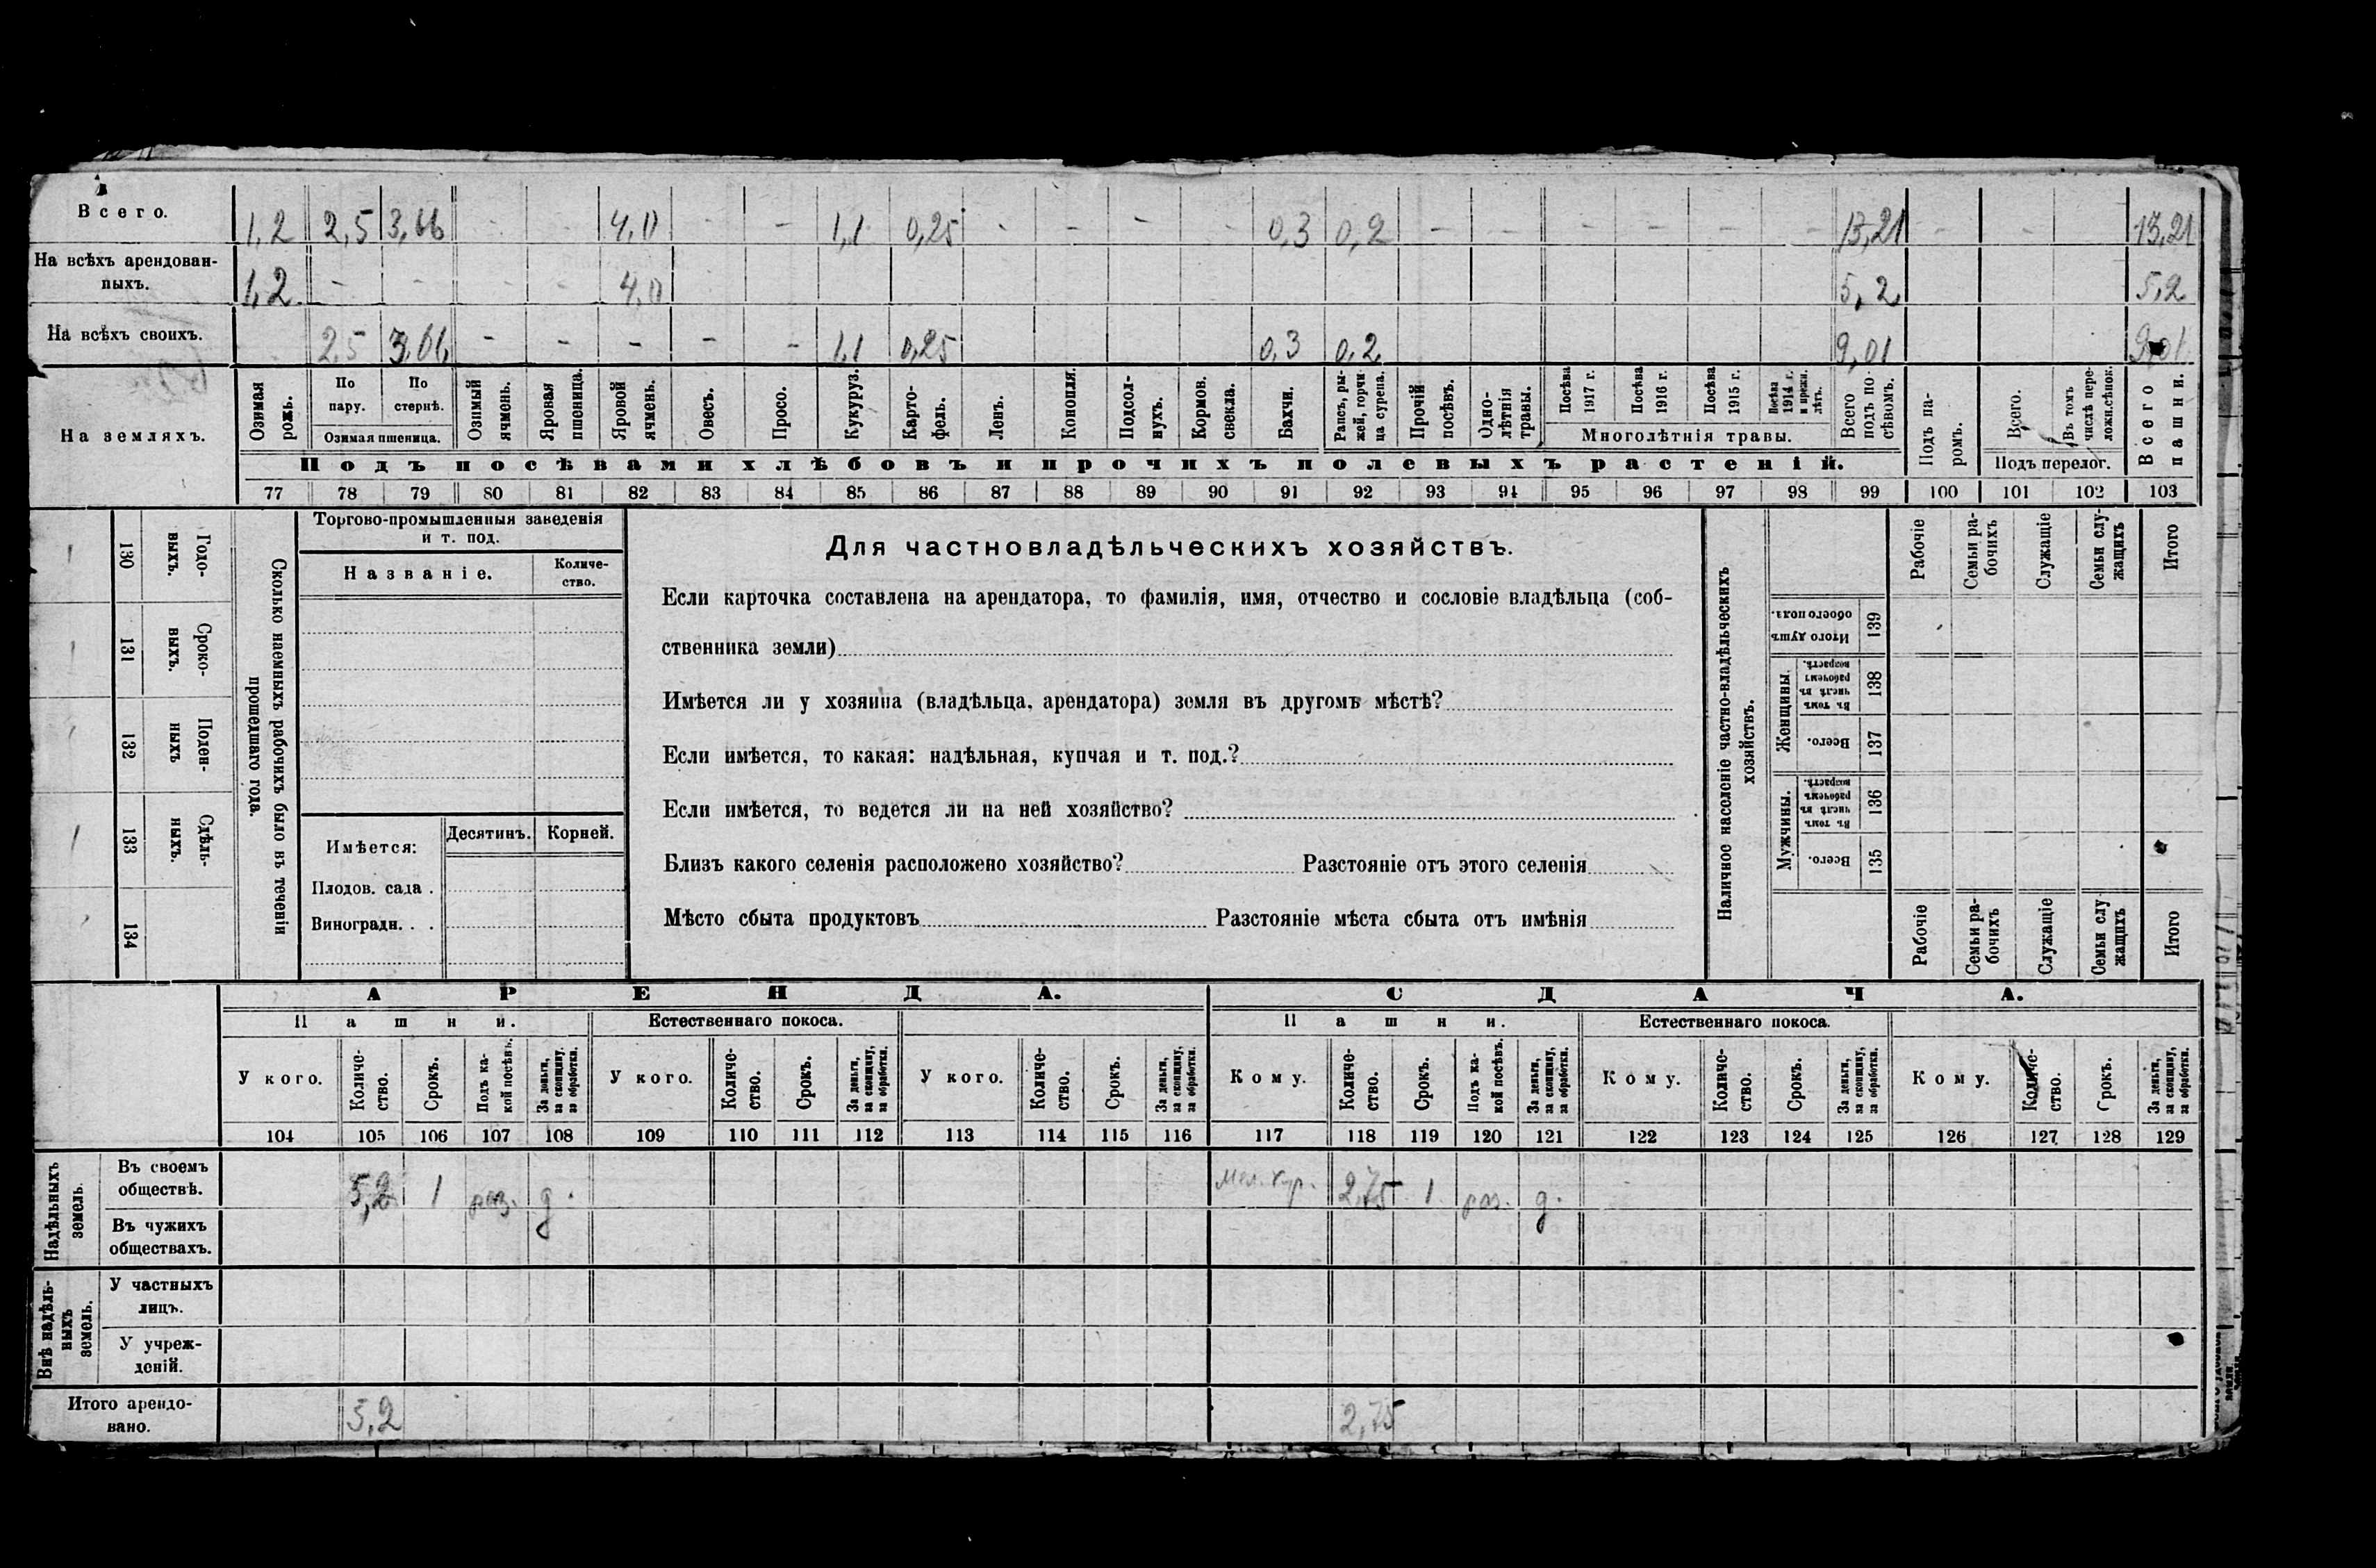 Всего. 1,2 2,5 3,66 - - 4,0 - - 1,1 0,25 - - - - 0,3 0,2 - - - - - - 13,21 - - 13,21
На всѣхъ арендован-
ныхъ. 1,2 - - - - 4,0 5,2 5,2
На всѣхъ своихъ. 2,5 - - - - - 1,1 0,25 0,3 0,2 9,01 9,01
На земляхъ.
Озимая рожь.
По пару.
По стернѣ.
Озимая пшеница.
Озимый ячмень.
Яровая пшеница.
Яровой ячмень.
Овесъ.
Просо.
Кукуруз.
Карто-
фель.
Ленъ.
Конопля.
Подсол-
нухъ.
Кормов. свекла.
Бахчи.
Рапсъ, ры-
жей, горчи-
ца сурепа.
Прочій посѣвъ.
Одно-
лѣтнія травы.
Посѣва 1917 г.
Посѣва 1916 г.
Посѣва 1915 г.
Посѣва 1914 г. и прежн. лѣтъ.
Многолѣтнія травы.
Всего подъ по-
сѣвомъ.
Подъ па-
ромъ.
Всего.
Въ томъ числѣ пере-
ложн.сѣнок.
Подъ перелог.
Всего пашни.
Подъ посѣвами хлѣбовъ и прочихъ полевыхъ растеній.
77 78 79 80 81 82 83 84 85 86 87 88 89 90 91 92 93 94 95 96 97 98 99 100 101 102 103
Сколько наемныхъ рабочихъ было въ теченіи
прошедшаго года.
Годо-
выхъ.
130
Сроко-
выхъ.
131
Поден-
ныхъ
132
Сдѣль-
ныхъ.
133
134
Торгово-промышленныя заведенія
и т. под.
Названіе.
Количе-
ство.
Имѣется:
Десятинъ. Корней.
Плодов. сада .
Виноградн. . .
Для частновладѣльческихъ хозяйствъ.
Если карточка составлена на арендатора, то фамилія, имя, отчество и сословіе владѣльца (соб-
ственника земли)
Имѣется ли у хозяина (владѣльца, арендатора) земля въ другомъ мѣстѣ?
Если имѣется, то какая: надѣльная, купчая и т. под.?
Если имѣется, то ведется ли на ней хозяйство?
Близъ какого селенія расположено хозяйство? Разстояніе отъ этого селенія
Мѣсто сбыта продуктовъ Разстояніе мѣста сбыта отъ имѣнія
Наличное населеніе частно-владѣльческихъ
хозяйствъ.
Рабочіе
Семьи ра-
бочихъ
Служащіе
Семьи слу-
жащихъ
Итого
Итого душъ обоего пола.
139
Женщины.
Въ томъ числѣ въ рабочемъ возрастѣ.
138
Всего.
137
Мужчины.
Въ томъ числѣ въ рабочемъ возрастѣ.
136
Всего.
135
Рабочіе
Семьи ра-
бочихъ
Служащіе
Семьи слу-
жащихъ
Итого
АРЕНДА. СДАЧА.
Пашни. Естественнаго покоса. Пашни. Естественнаго покоса.
У кого.
Количе-
ство.
Срокъ.
Подъ ка-
кой посѣвъ.
За деньги, за скопщину, за обработки.
У кого.
Количе-
ство.
Срокъ.
За деньги, за скопщину, за обработки.
У кого.
Количе-
ство.
Срокъ.
За деньги, за скопщину, за обработки.
Кому.
Количе-
ство.
Срокъ.
Подъ ка-
кой посѣвъ.
За деньги, за скопщину, за обработки.
Кому.
Количе-
ство.
Срокъ.
За деньги, за скопщину, за обработки.
Кому.
Количе-
ство.
Срокъ.
За деньги, за скопщину, за обработки.
104 105 106 107 108 109 110 111 112 113 114 115 116 117 118 119 120 121 122 123 124 125 126 127 128 129
Надѣльныхъ
земель.
Въ своемъ
обществѣ. 5,2 1 раз. д. 2,75 1 раз. д.
Въ чужихъ
обществахъ.
Внѣ надѣль-
ныхъ
земель.
У частныхъ
лицъ.
У учреж-
деній.
Итого арендо-
вано. 5,2 2,75